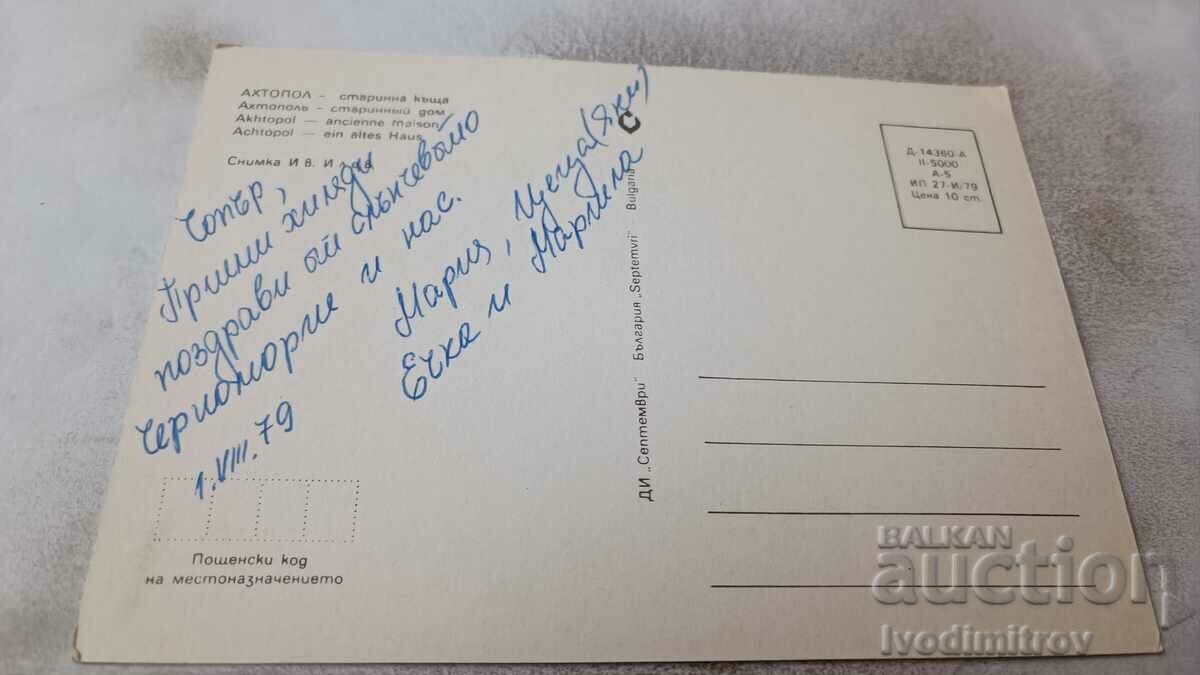 АХТОПОЛ – старинна къща
Ахтополь – старинный дом
Akhtopol – ancienne maison
Achtopol – ein altes Haus
Снимка И в. И
Чопър,
Приеми хиляди
поздрави от слънчевото
Черноморие и нас.
Мария, Цеца (Яки)
Ечка и Марила
1.VIII.79
Пощенски код
на местоназначението
ДИ „Септември" България „Septemvri" Bulgaria
Д-14360-А
II-5000
А-5
ИП 27-И/79
Цена 10 ст.
BALKAN
auction
Ivodimitrov